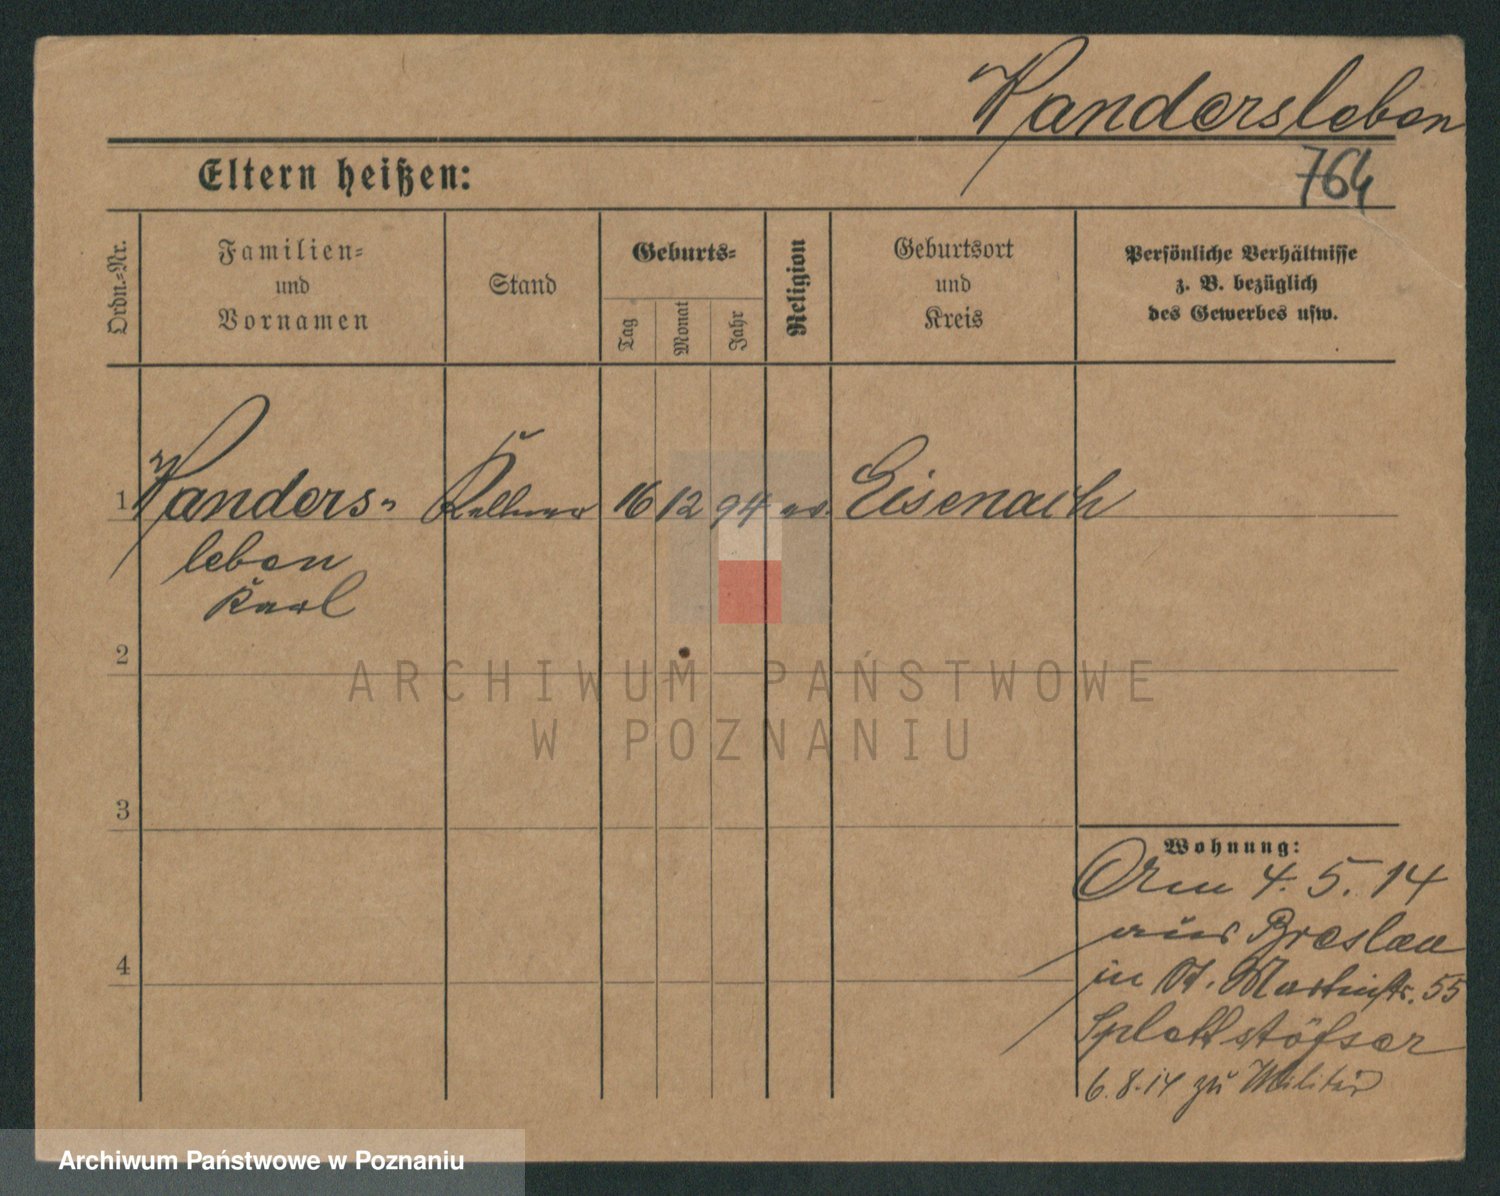 Wandersleben
764
Eltern heißen:
Ordn.-Nr.
Familien-
und
Vornamen
Stand
Geburts-
Tag
Monat
Jahr
Religion
Geburtsort
und
Kreis
Persönliche Verhältnisse
z. B. bezüglich
des Gewerbes usw.
1 Wanders- Kellner 16 12 94 ev. Eisenach
leben
Karl
2
3
4
Wohnung:
Am 4. 5. 14
aus Breslau
in St. Martinstr. 55
Splettstößer
6. 8. 14 zu Militär
ARCHIWUM PAŃSTWOWE
W POZNANIU
Archiwum Państwowe w Poznaniu